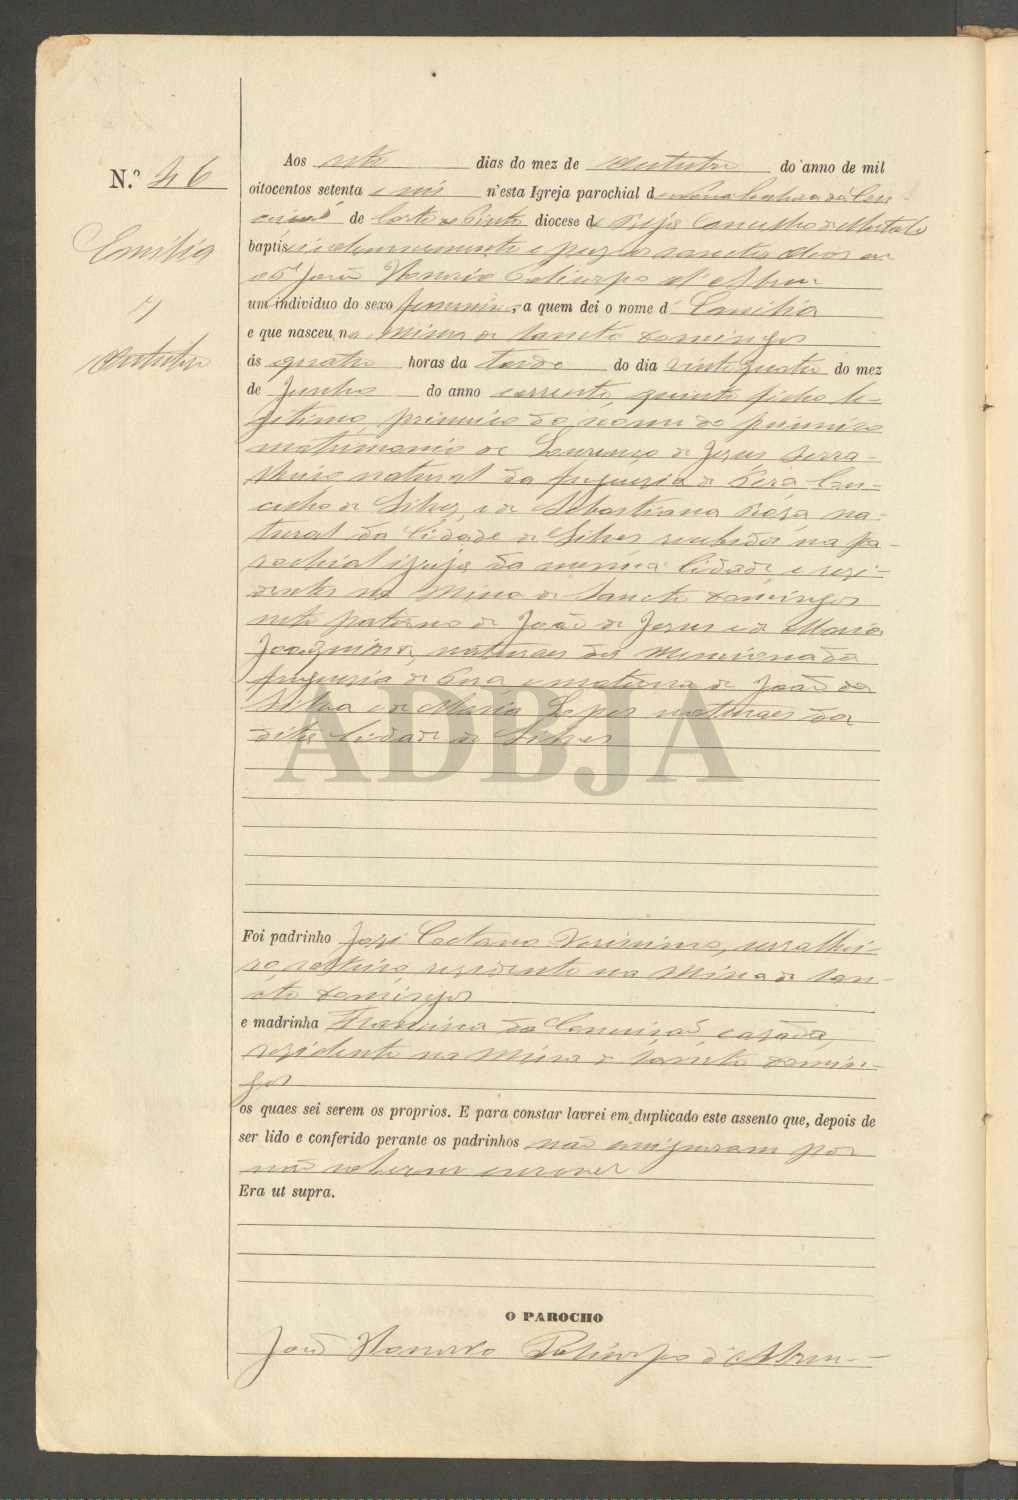 N.º 46
Emilia
7
Outubro
Aos sete dias do mez de Outubro do anno de mil
oitocentos setenta e seis n'esta Igreja parochial de Nossa Senhora da Con-
ceicaõ de Corte do Pinto diocese de Beja Concelho de Mertola
baptisei solemnemente e puz os sanctos oleos eu
João Honorio Policarpo d'Abreu
um individuo do sexo femenino, a quem dei o nome d' Emilia
e que nasceu na Mina de Sancto Domingos
ás quatro horas da tarde do dia vinte quatro do mez
de Junho do anno corrente, quinto filho le-
gitimo, primeiro do nome do primeiro
matrimonio de Lourenço de Jesus serra-
lheiro natural da freguesia de Pera Con-
celho de Silves, e de Sebastiana Rosa na-
tural da Cidade de Silves recebidos na pa-
rochial igreja da mesma Cidade, e resi-
dentes na Mina de Sancto Domingos
neto paterno de João de Jesus e de Maria
Joaquina, naturaes da mencionada
freguesia de Pera, e materna de João da
Silva e de Maria Lopes naturaes da
dita Cidade de Silves
ADBJA
Foi padrinho José Caetano Verissimo, serralhei-
ro, solteiro, residente na Mina de San-
cto Domingos
e madrinha Francisca da Conceição, casada,
residente na Mina de Sancto Domin-
gos
os quaes sei serem os proprios. E para constar lavrei em duplicado este assento que, depois de
ser lido e conferido perante os padrinhos não assignaram por
não saberem escrever
Era ut supra.
O PAROCHO
João Honorio Policarpo d'Abreu